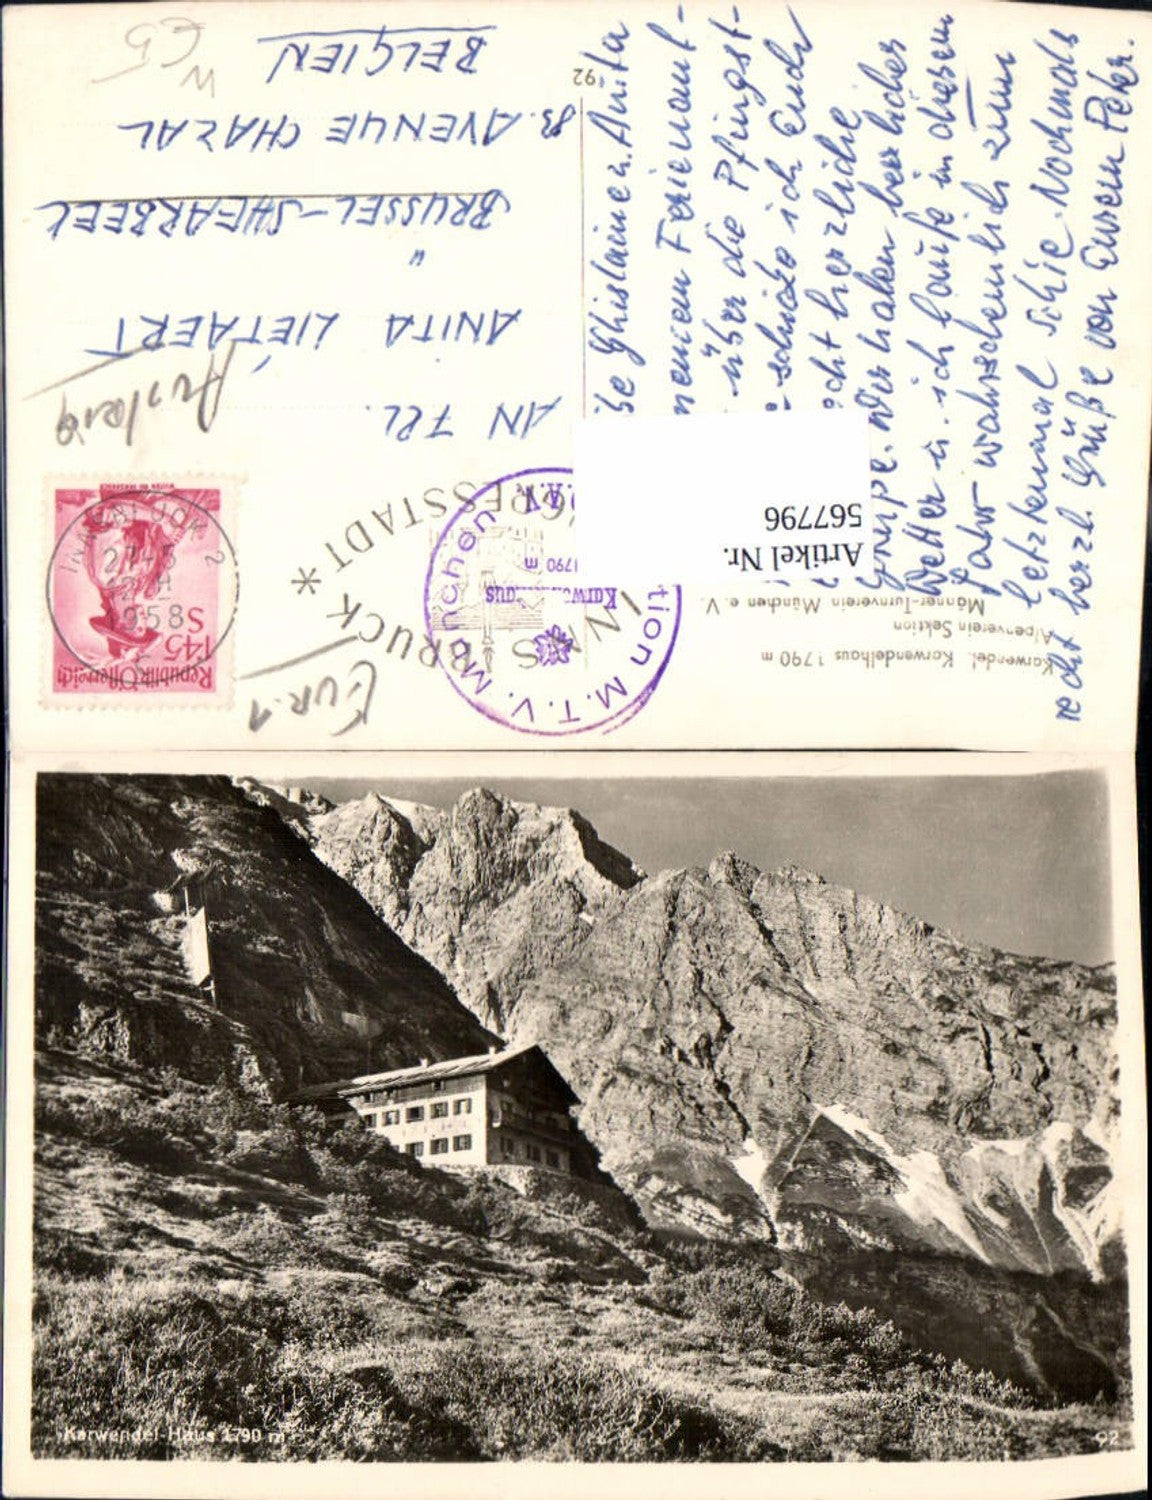 Liebe Ghislaine u. Anita
meinem Ferienauf-
über die Pfingst-
schicke ich Euch
recht herzliche
Grüße. Wir haben herrliches
Wetter u. ich laufe in diesem
Jahr wahrscheinlich zum
letztenmal Schie. Nochmals
recht herzl. Grüße von Eurem Peter.
Karwendel, Karwendelhaus 1790 m
Alpenverein Sektion
Männer-Turnverein München e. V.
92
Artikel Nr.
567796
EUR. 1
Republik Österreich
S 1.45
INNSBRUCK 2
27-5
1958
INNSBRUCK * KONGRESSTADT *
Sektion M.T.V. München D.A.V.
Karwendelhaus
1790 m
AN FRL.
ANITA LIETAERT
BRÜSSEL-SHEARBEEL
83. AVENUE CHAZAL
BELGIEN
Karwendel Haus 1790 m
92